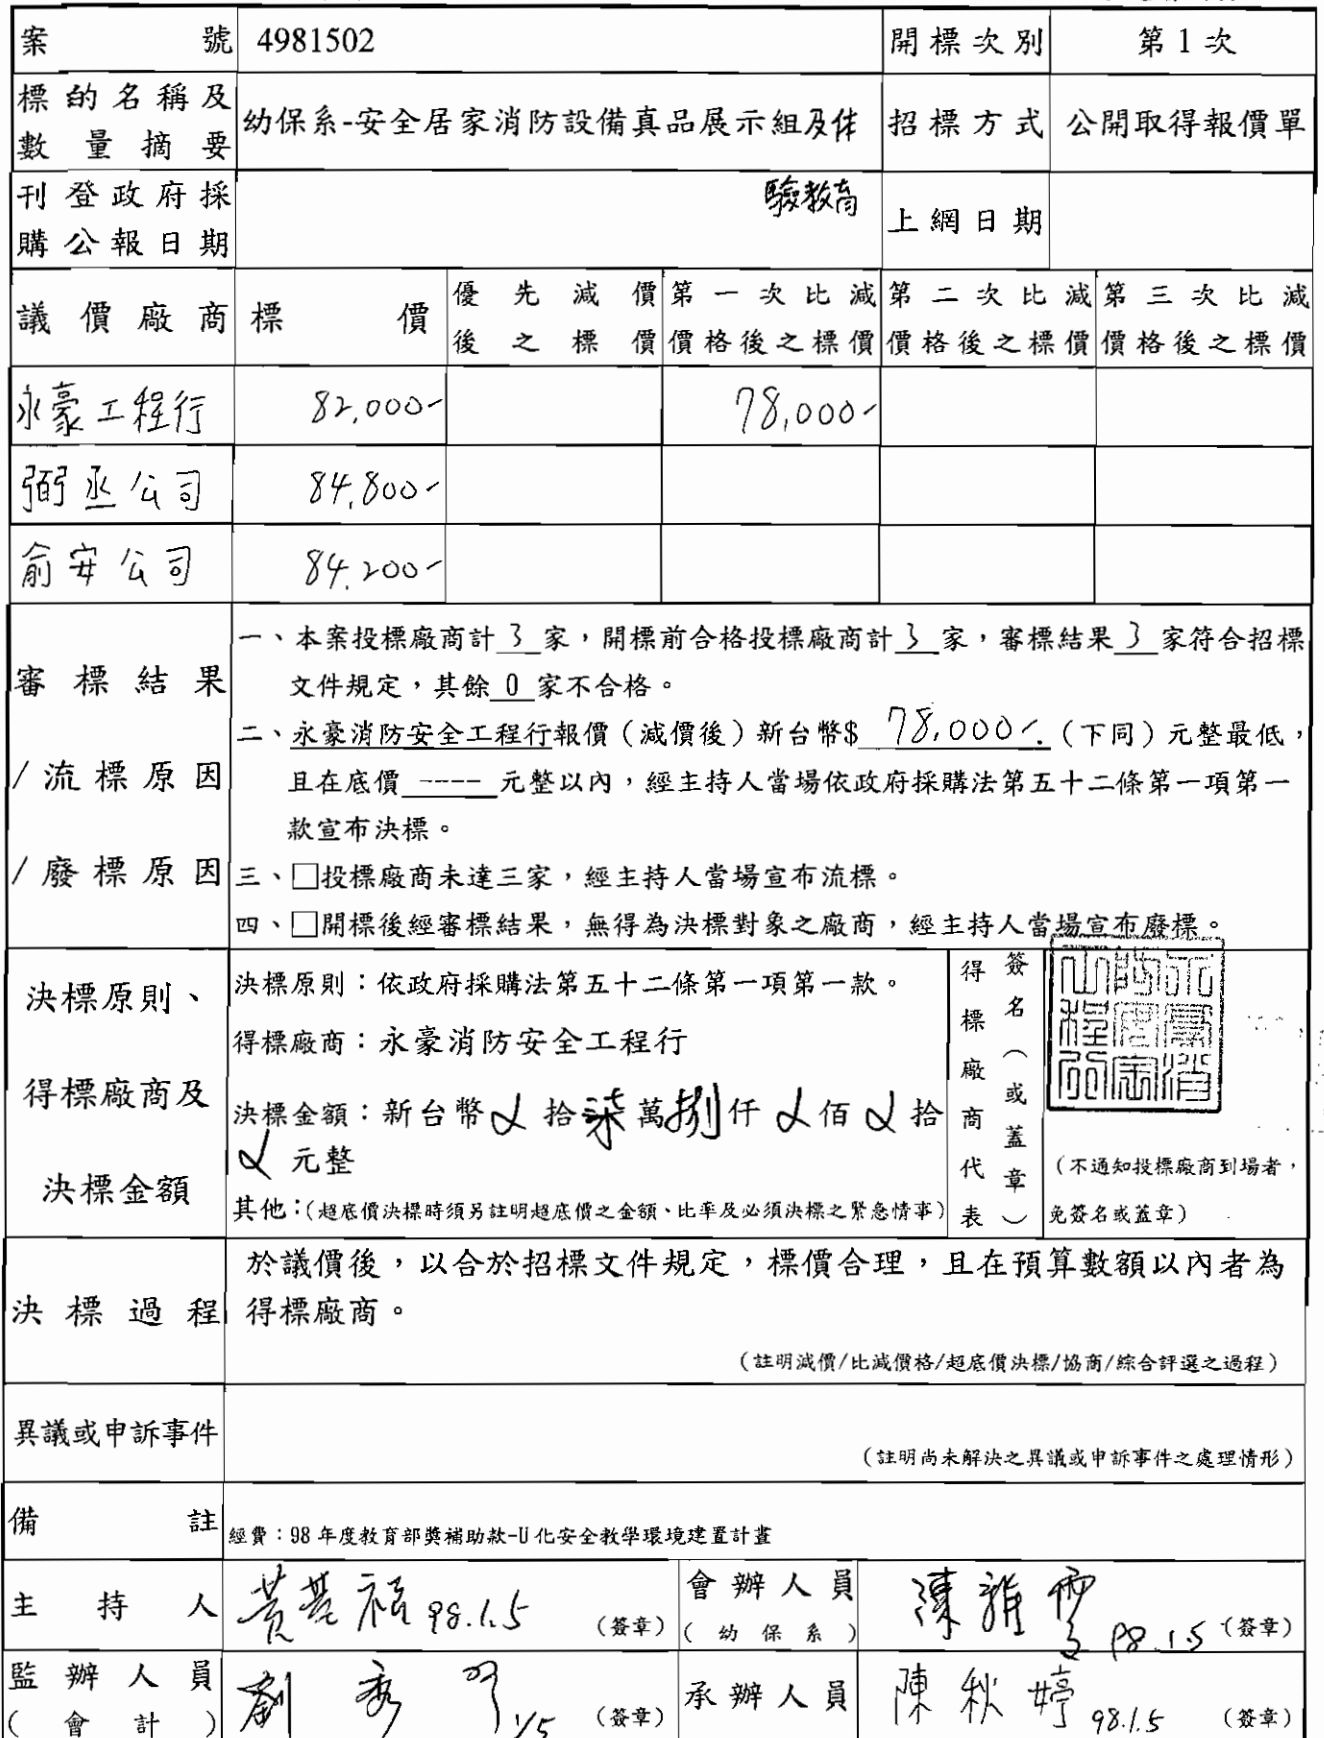 案號 4981502 開標次別 第1次
標的名稱及數量摘要 幼保系-安全居家消防設備真品展示組及体驗教育 招標方式 公開取得報價單
刊登政府採購公報日期 上網日期
議價廠商 標價 優先減價後之標價 第一次比減價格後之標價 第二次比減價格後之標價 第三次比減價格後之標價
永豪工程行 82,000- 78,000-
弼丞公司 84,800-
俞安公司 84,200-
審標結果/流標原因/廢標原因
一、本案投標廠商計 3 家,開標前合格投標廠商計 3 家,審標結果 3 家符合招標
文件規定,其餘 0 家不合格。
二、永豪消防安全工程行報價(減價後)新台幣$ 78,000/.(下同)元整最低,
且在底價 ---- 元整以內,經主持人當場依政府採購法第五十二條第一項第一
款宣布決標。
三、□投標廠商未達三家,經主持人當場宣布流標。
四、□開標後經審標結果,無得為決標對象之廠商,經主持人當場宣布廢標。
決標原則、得標廠商及決標金額
決標原則:依政府採購法第五十二條第一項第一款。
得標廠商:永豪消防安全工程行
決標金額:新台幣 拾柒萬捌仟 佰 拾
元整
其他:(超底價決標時須另註明超底價之金額、比率及必須決標之緊急情事)
得標廠商代表簽名(或蓋章)
永豪消防安全工程行
(不通知投標廠商到場者,
免簽名或蓋章)
決標過程
於議價後,以合於招標文件規定,標價合理,且在預算數額以內者為
得標廠商。
(註明減價/比減價格/超底價決標/協商/綜合評選之過程)
異議或申訴事件
(註明尚未解決之異議或申訴事件之處理情形)
備註 經費:98年度教育部獎補助款-U化安全教學環境建置計畫
主持人 98.1.5 (簽章) 會辦人員(幼保系) 陳雅雯 98.1.5 (簽章)
監辦人員(會計) 劉秀 1/5 (簽章) 承辦人員 陳秋婷 98.1.5 (簽章)